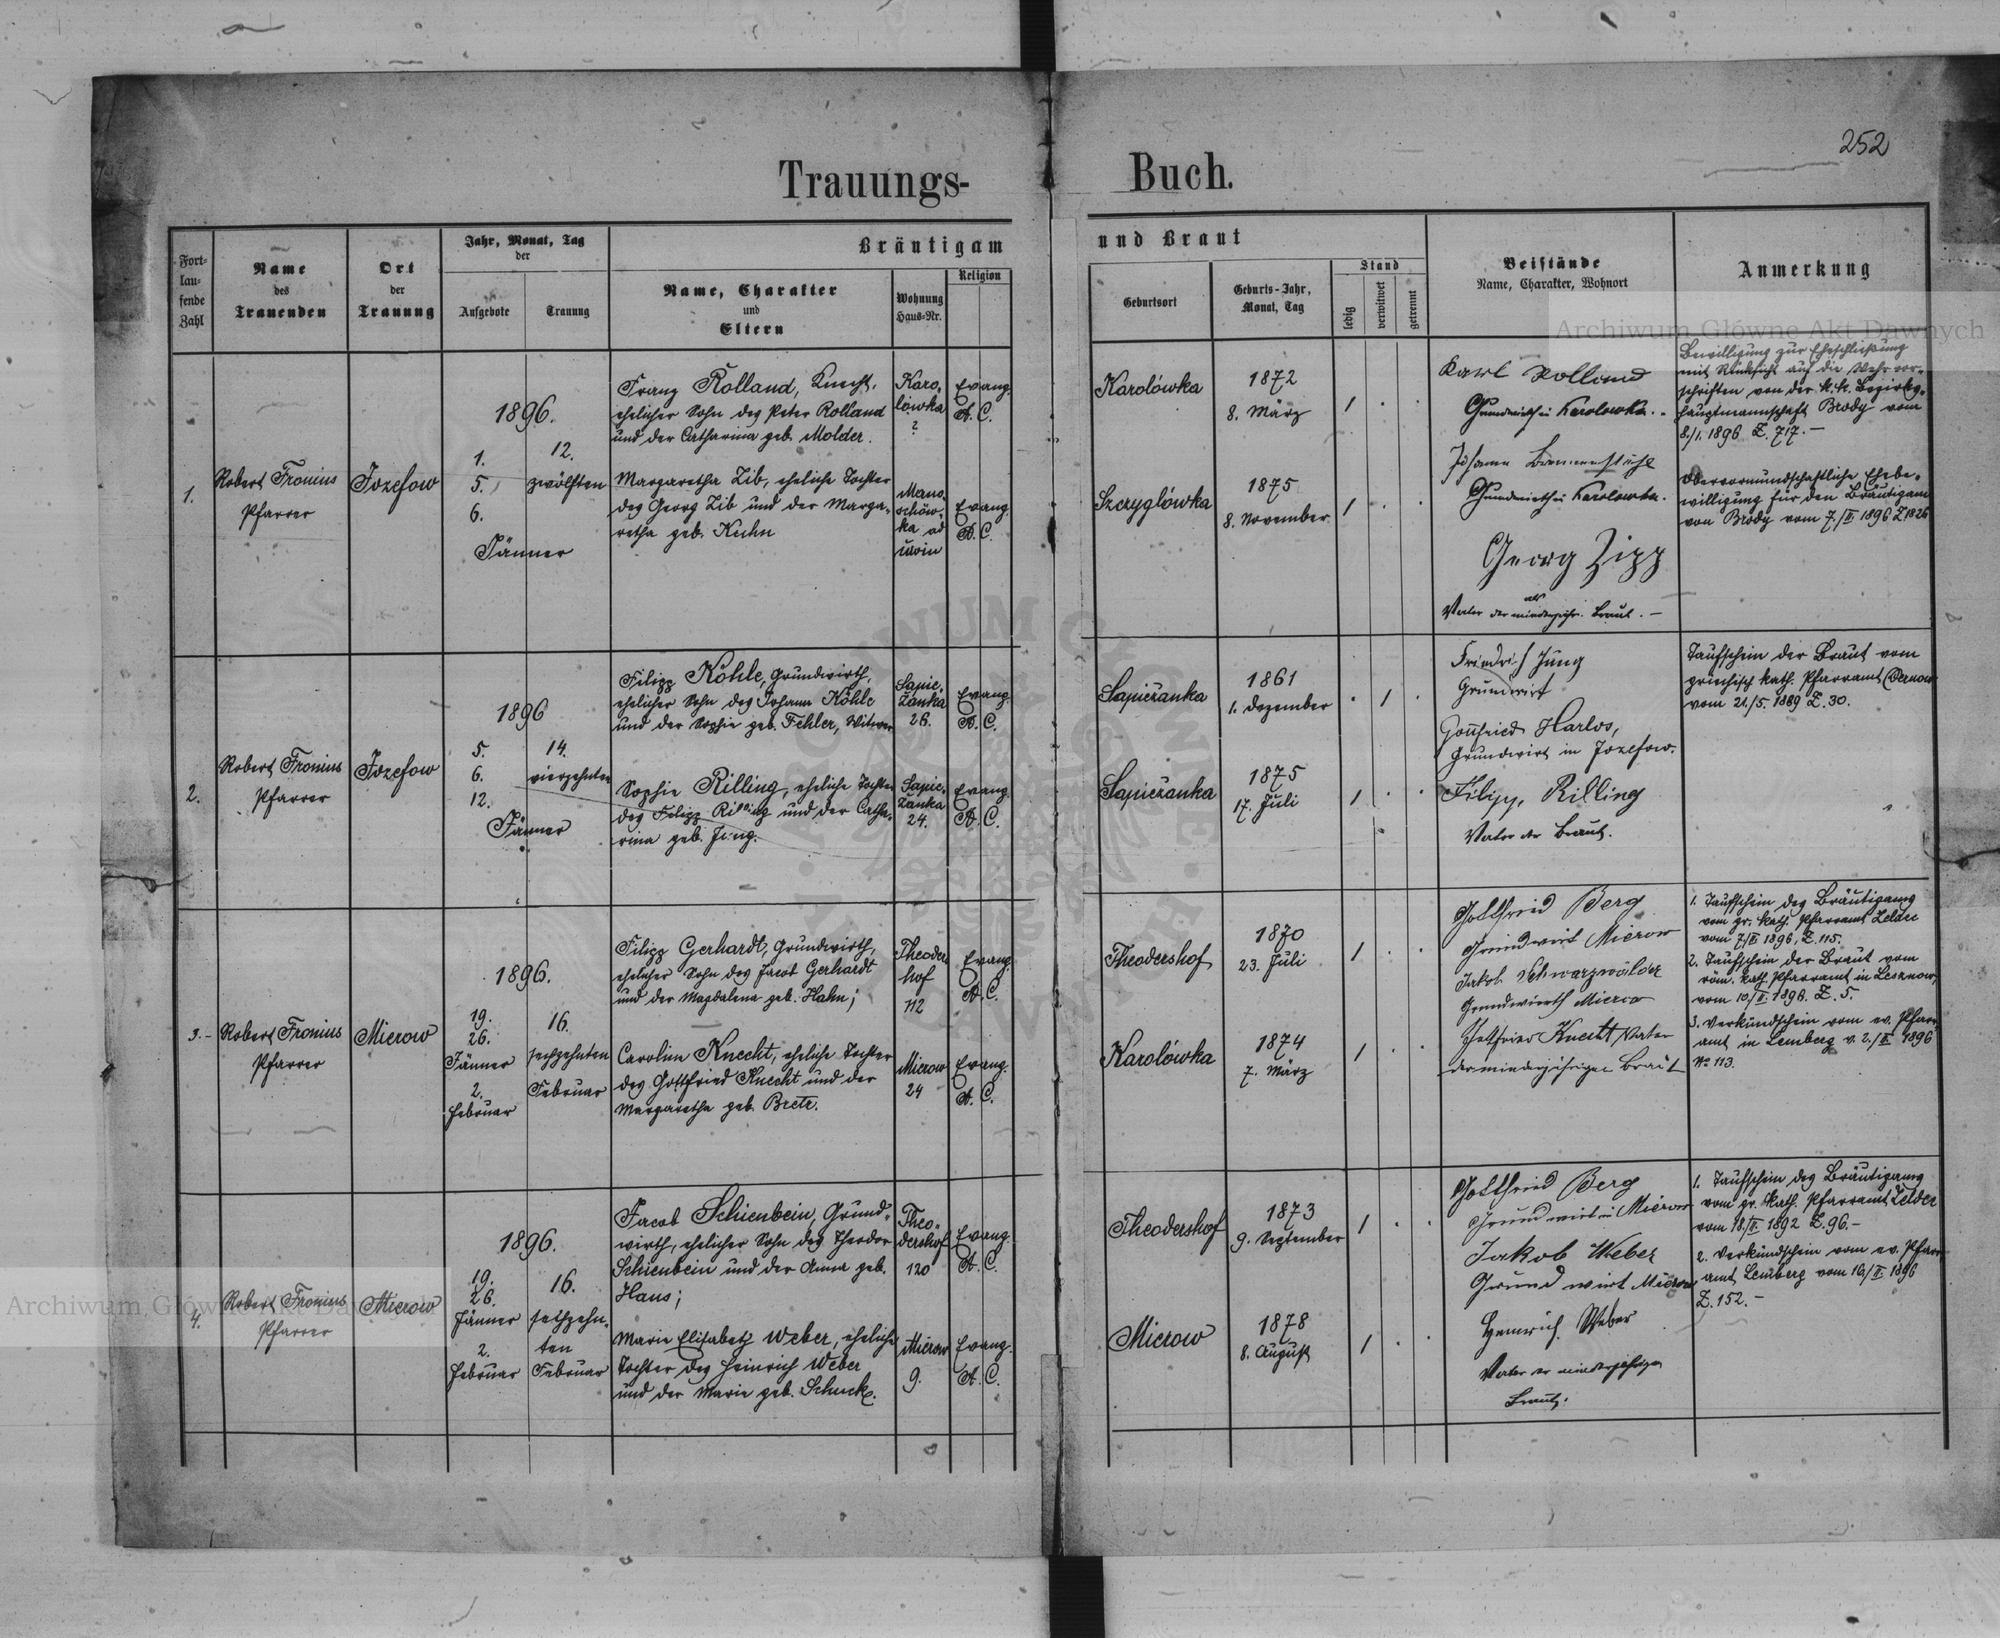 252
Trauungs-Buch.
Fort-
lau-
fende
Zahl
Name
des
Trauenden
Ort
der
Trauung
Jahr, Monat, Tag
der
Aufgebote
Trauung
Bräutigam und Braut
Name, Charakter
und
Eltern
Wohnung
Haus-Nr.
Religion
Geburtsort
Geburts-Jahr,
Monat, Tag
Stand
ledig
verwitwet
getrennt
Beistände
Name, Charakter, Wohnort
Anmerkung
Archiwum Główne Akt Dawnych
1.
Robert Fronius
Pfarrer
Jozefow
1896.
1.
5.
6.
Jänner
12.
zwölften
Franz Rolland, Knecht,
ehelicher Sohn des Peter Rolland
und der Catharina geb. Molder.
Karo-
lówka
?
Evang.
A. C.
Karolówka
1872
8. März
Margaretha Zib, eheliche Tochter
des Georg Zib und der Marga-
retha geb. Kuhn
ka ad
Evang.
A. C.
Szczyglówka
1875
8. November.
Karl Rolland
Grundwirth in Karolowka.
Johann
Grundwirth in Karolowka.
Georg Zipp
als
Vater der minderjähr. Braut. —
Bewilligung zur Eheschließung
mit Rücksicht auf die Wehrvor-
schriften von der k. k. Bezirks-
hauptmannschaft Brody vom
8./1. 1896 Z. 717. —
Obervormundschaftliche Ehebe-
willigung für den Bräutigam
von Brody vom 7./II. 1896 Z 1826
2.
Robert Fronius
Pfarrer
Jozefow
1896
5.
6.
12.
Jänner
14.
vierzehnten
Filipp Köhle, Grundwirth,
ehelicher Sohn des Johann Köhle
und der Sophie geb. Fehler, Witwer
Sapie-
żanka
26.
Evang.
A. C.
Sapieżanka
1861
1. Dezember
Sophie Rilling, eheliche Tochter
des Filipp Rilling und der Catha-
rina geb. Jung.
Sapie-
żanka
24.
Evang.
A. C.
Sapieżanka
1875
17. Juli
Friedrich Jung
Grundwirt
Gottfried Harlos,
Grundwirt in Jozefow.
Filipp Rilling
Vater der Braut.
Taufschein der Braut vom
griechisch kath. Pfarramt
vom 21./5. 1889 Z. 30.
3.-
Robert Fronius
Pfarrer
Mierow
1896.
19.
26.
Jänner
2.
Februar
16.
sechzehnten
Februar
Filipp Gerhardt, Grundwirth,
ehelicher Sohn des Jacob Gerhardt
und der Magdalena geb. Hahn;
Theoders
hof
112
Evang.
A. C.
Theodershof
1870
23. Juli
Carolin Knecht, eheliche Tochter
des Gottfried Knecht und der
Margaretha geb. Bretz.
Mierow
24
Evang.
A. C.
Karolówka
1874
7. März
Gottfried Berg
Grundwirt Mierow
Jakob Schwarzwälder
Grundwirth Mierow
Gottfried Knecht Vater
der minderjährigen Braut
1. Taufschein des Bräutigams
vom gr. kath. Pfarramt Zeldec
vom 7./II 1896, Z. 115.
2. Taufschein der Braut vom
röm. kath. Pfarramt in Lesznow,
vom 10/II. 1896. Z. 5.
3. Verkündschein vom ev. Pfarr-
amt in Lemberg v. 2./II 1896
No 113.
4.
Robert Fronius
Pfarrer
Mierow
1896.
19.
26.
Jänner
2.
Februar
16.
sechzehn-
ten
Februar
Jacob Schienbein, Grund-
wirth, ehelicher Sohn des Theodor
Schienbein und der Anna geb.
Haus;
Theo-
dershof
120
Evang.
A. C.
Theodershof
1873
9. September
Marie Elisabeth Weber, eheliche
Tochter des Heinrich Weber
und der Marie geb. Schuck.
Mierow
9.
Evang.
A. C.
Mierow
1878
8. August
Gottfried Berg
Grundwirt in Mierow
Jakob Weber
Grundwirt Mierow
Heinrich Weber
Vater der minderjährigen
Braut.
1. Taufschein des Bräutigams
vom gr. kath. Pfarramt Zeldec
vom 18./II. 1892 Z. 96.-
2. Verkündschein vom ev. Pfarr-
amt Lemberg vom 16./II. 1896
Z. 152. -
Archiwum Główne Akt Dawnych